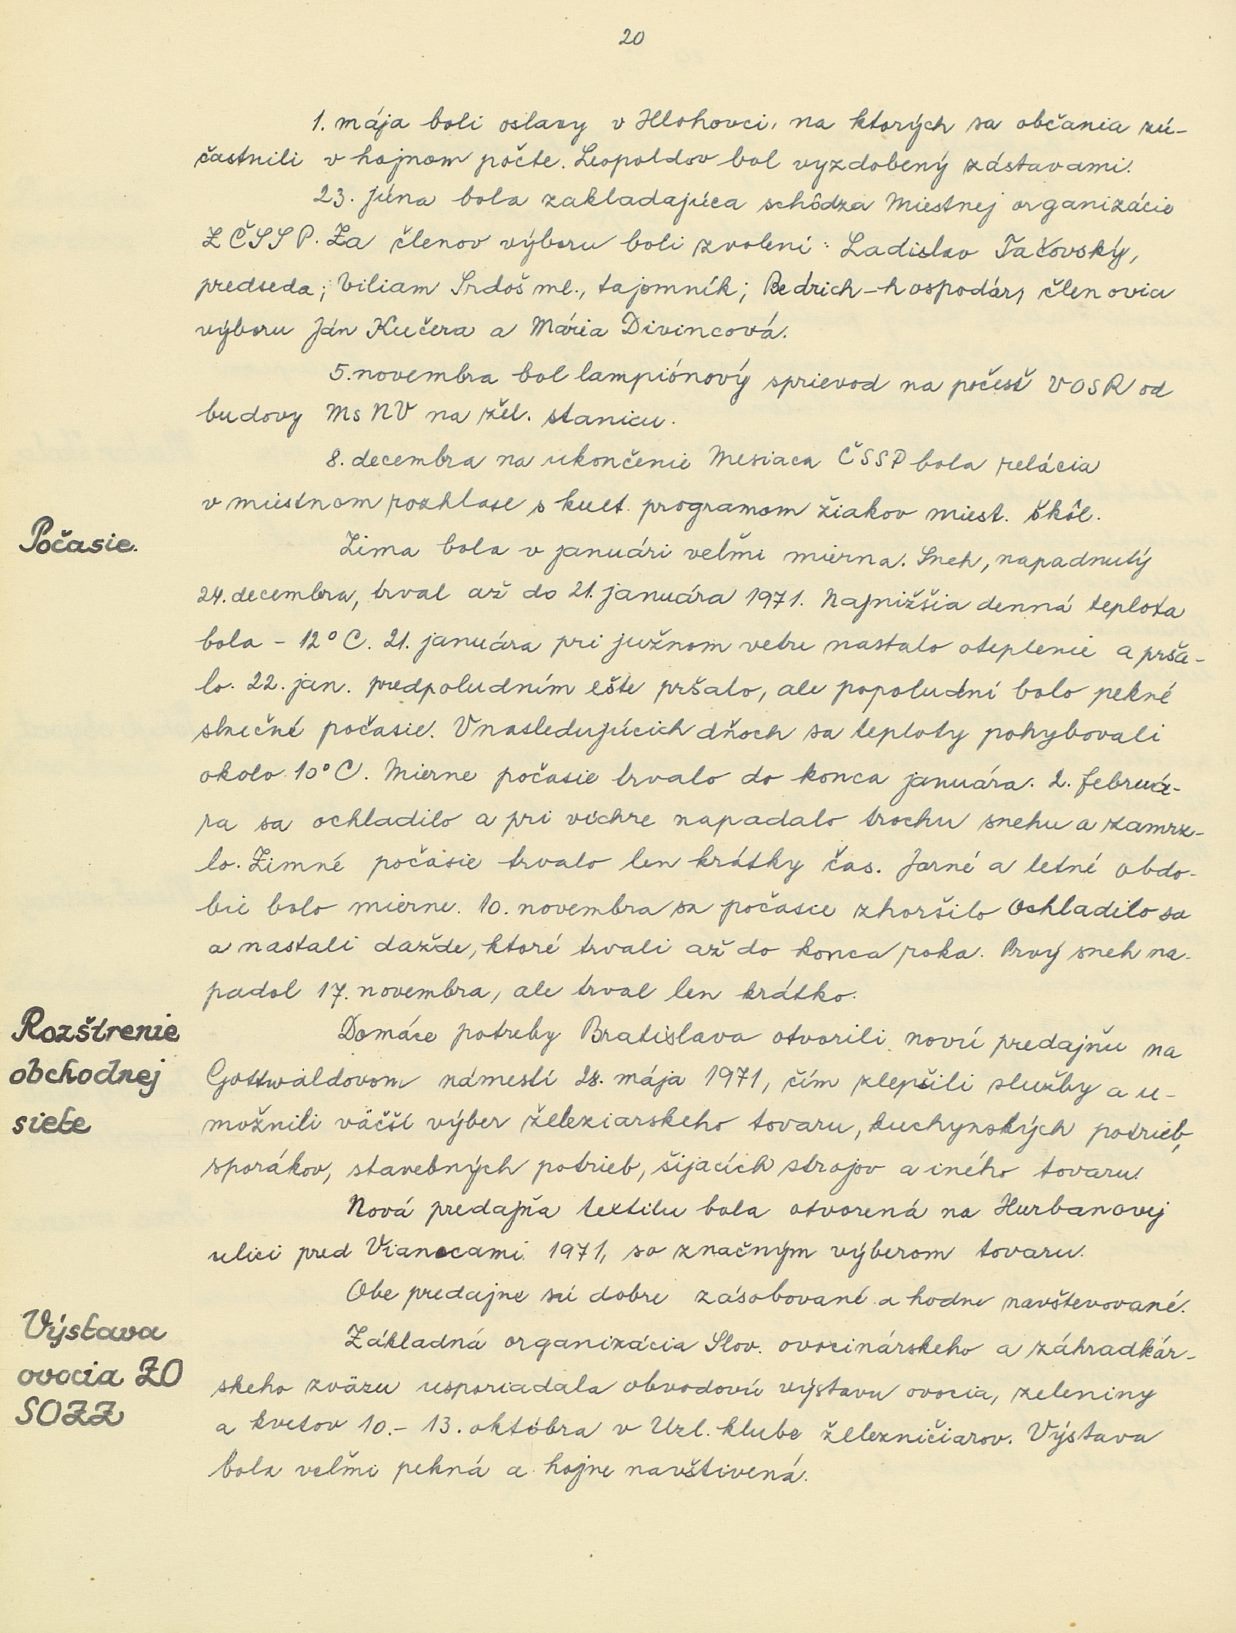 20
1. mája boli oslavy v Hlohovci, na ktorých sa občania zú-
častnili v hojnom počte. Leopoldov bol vyzdobený zástavami.
23. júna bola zakladajúca schôdza Miestnej organizácie
ZČSSP. Za členov výboru boli zvolení: Ladislav Ťačovský,
predseda; Viliam Srdoš ml., tajomník; Bedrich - hospodár, členovia
výboru Ján Kučera a Mária Divincová.
5. novembra bol lampiónový sprievod na počesť VOSR od
budovy MsNV na žel. stanicu.
8. decembra na ukončenie Mesiaca ČSSP bola relácia
v miestnom rozhlase s kult. programom žiakov miest. škôl.
Počasie.
Zima bola v januári veľmi mierna. Sneh, napadnutý
24. decembra, trval až do 21. januára 1971. Najnižšia denná teplota
bola - 12°C. 21. januára pri južnom vetru nastalo oteplenie a prša-
lo. 22. jan. predpoludním ešte pršalo, ale popoludní bolo pekné
slnečné počasie. V nasledujúcich dňoch sa teploty pohybovali
okolo 10°C. Mierne počasie trvalo do konca januára. 2. februá-
ra sa ochladilo a pri víchre napadalo trochu snehu a zamrz-
lo. Zimné počasie trvalo len krátky čas. Jarné a letné obdo-
bie bolo mierne. 10. novembra sa počasie zhoršilo Ochladilo sa
a nastali dažde, ktoré trvali až do konca roka. Prvý sneh na-
padol 17. novembra, ale trval len krátko.
Rozšírenie
obchodnej
siete
Domáce potreby Bratislava otvorili novú predajňu na
Gottwaldovom námestí 28. mája 1971, čím zlepšili služby a u-
možnili väčší výber železiarskeho tovaru, kuchynských potrieb,
sporákov, stavebných potrieb, šijacích strojov a iného tovaru.
Nová predajňa textilu bola otvorená na Hurbanovej
ulici pred Vianocami 1971, so značným výberom tovaru.
Obe predajne sú dobre zásobované a hodne navštevované.
Výstava
ovocia ZO
SOZZ
Základná organizácia Slov. ovocinárskeho a záhradkár-
skeho zväzu usporiadala obvodovú výstavu ovocia, zeleniny
a kvetov 10. - 13. októbra v Uzl. klube železničiarov. Výstava
bola veľmi pekná a hojne navštívená.